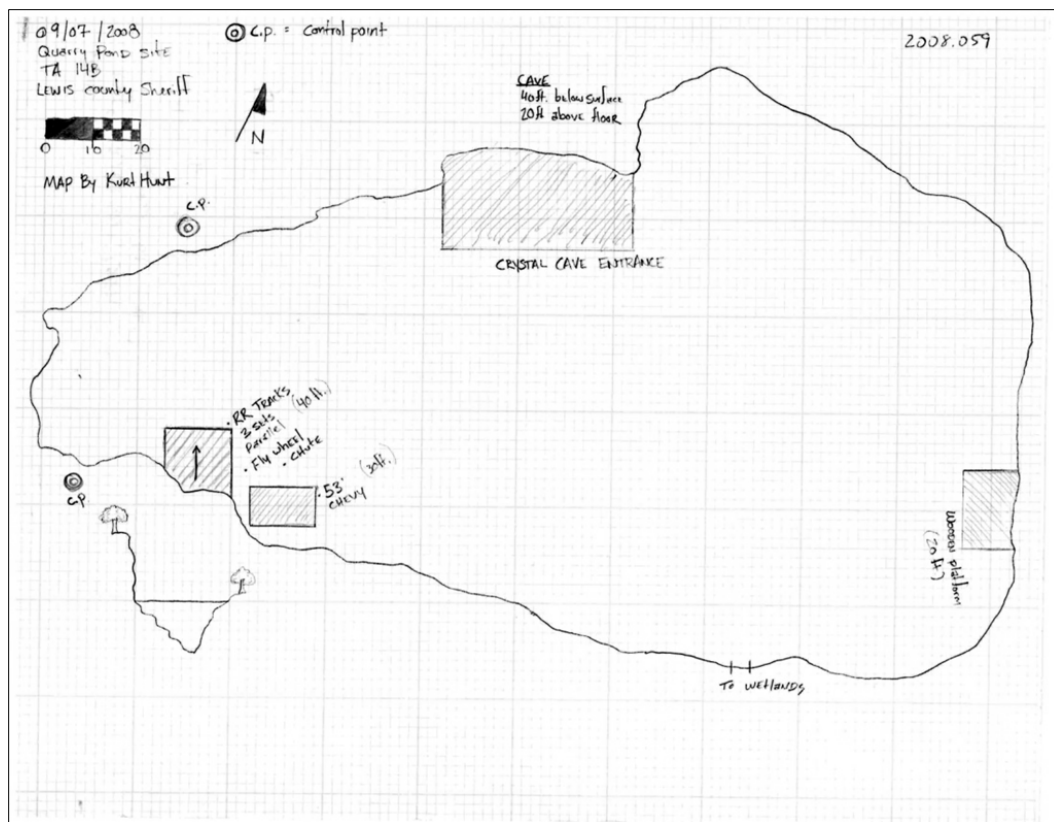 09/07/2008
Quarry Pond Site
TA 14B
LEWIS County Sheriff
0 10 20
MAP BY Kurt Hunt
C.P. = Control point
N
2008.059
CAVE
40ft. below surface
20ft above floor
C.P.
CRYSTAL CAVE ENTRANCE
• RR TRACKS (40 ft.)
3 sets
Parallel
• Fly wheel
• CHUTE
• 53' (30ft.)
CHEVY
C.P.
Wooden platform
(20 ft)
To WETLANDS